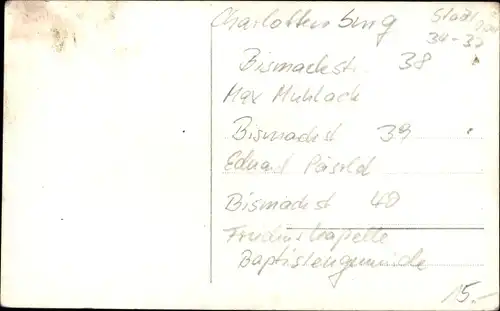 Charlottenburg
Stadt
34-37
Bismarckstr. 38
Max Muhlack
Bismarckst 39
Eduard
Bismarckst 40
Friedenskapelle
Baptistengemeinde
15.-